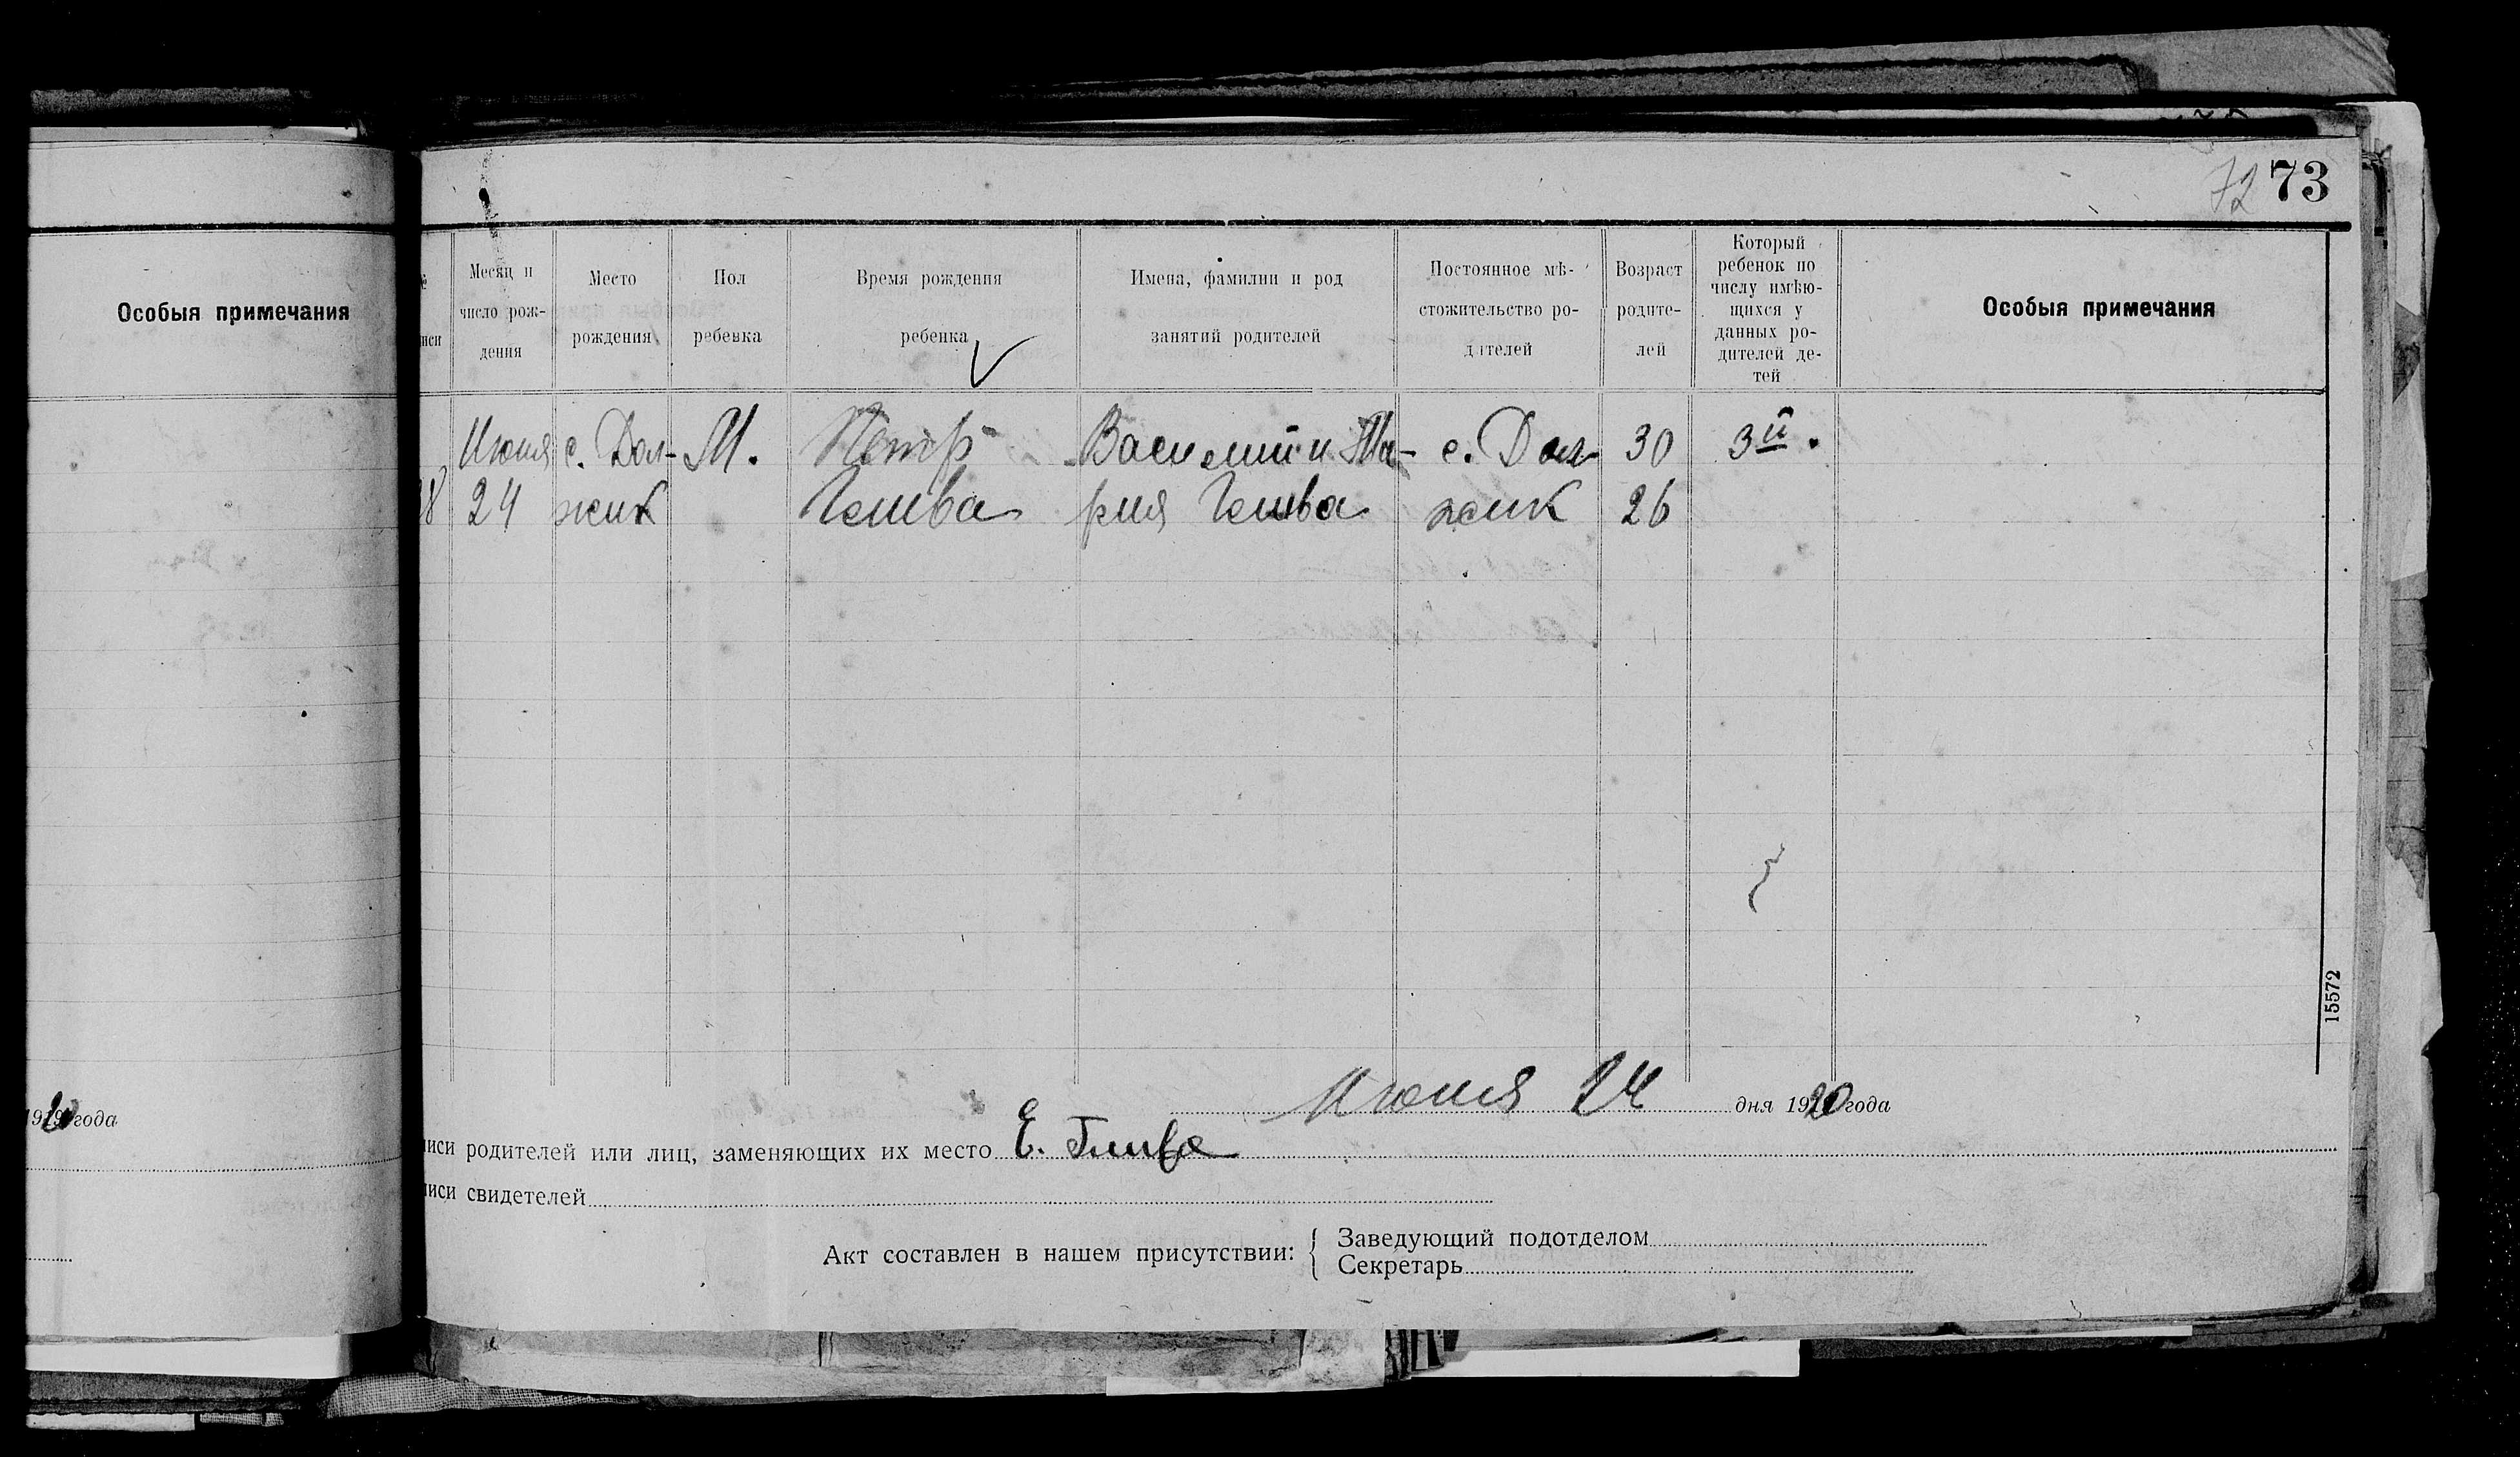 72 73
Особыя примечания
Месяц и число рождения
Место рождения
Пол ребенка
Время рождения ребенка
Имена, фамилии и род занятий родителей
Постоянное мѣстожительство родителей
Возраст родителей
Который ребенок по числу имѣющихся у данных родителей детей
Особыя примечания
Июня с. Дол- М. Петр Василий и Ма- с. Дол- 30 3й.
8 24 жик Глива рия Глива жик 26
15572
Июня 24 дня 1920 года
1920 года
иси родителей или лиц, заменяющих их место Е. Глива
иси свидетелей
Акт составлен в нашем присутствии: { Заведующий подотделом
Секретарь